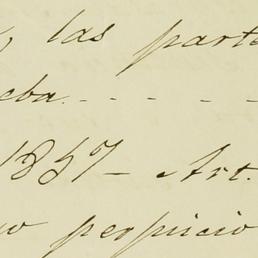 las parte
eba - - - -
1857 - Art.
perjuicio